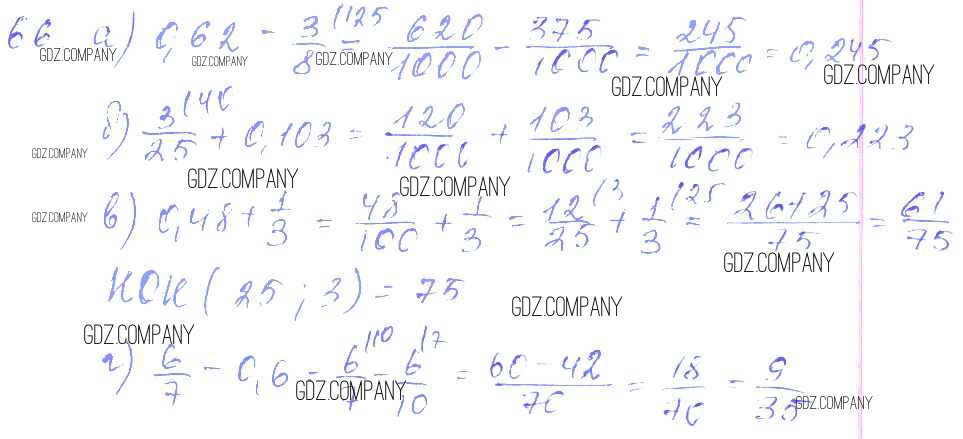 66 а) 0,62 - 3/8 (125 = 620/1000 - 375/1000 = 245/1000 = 0,245
б) 3/25 (40 + 0,103 = 120/1000 + 103/1000 = 223/1000 = 0,223
в) 0,48 + 1/3 = 48/100 + 1/3 = 12/25 (3 + 1/3 (25 = 26+25/75 = 61/75
НОК (25; 3) = 75
г) 6/7 - 0,6 = 6/7 (10 - 6/10 (7 = 60-42/70 = 18/70 = 9/35
GDZ.COMPANY
GDZ.COMPANY
GDZ.COMPANY
GDZ.COMPANY
GDZ.COMPANY
GDZ.COMPANY
GDZ.COMPANY
GDZ.COMPANY
GDZ.COMPANY
GDZ.COMPANY
GDZ.COMPANY
GDZ.COMPANY
GDZ.COMPANY
GDZ.COMPANY